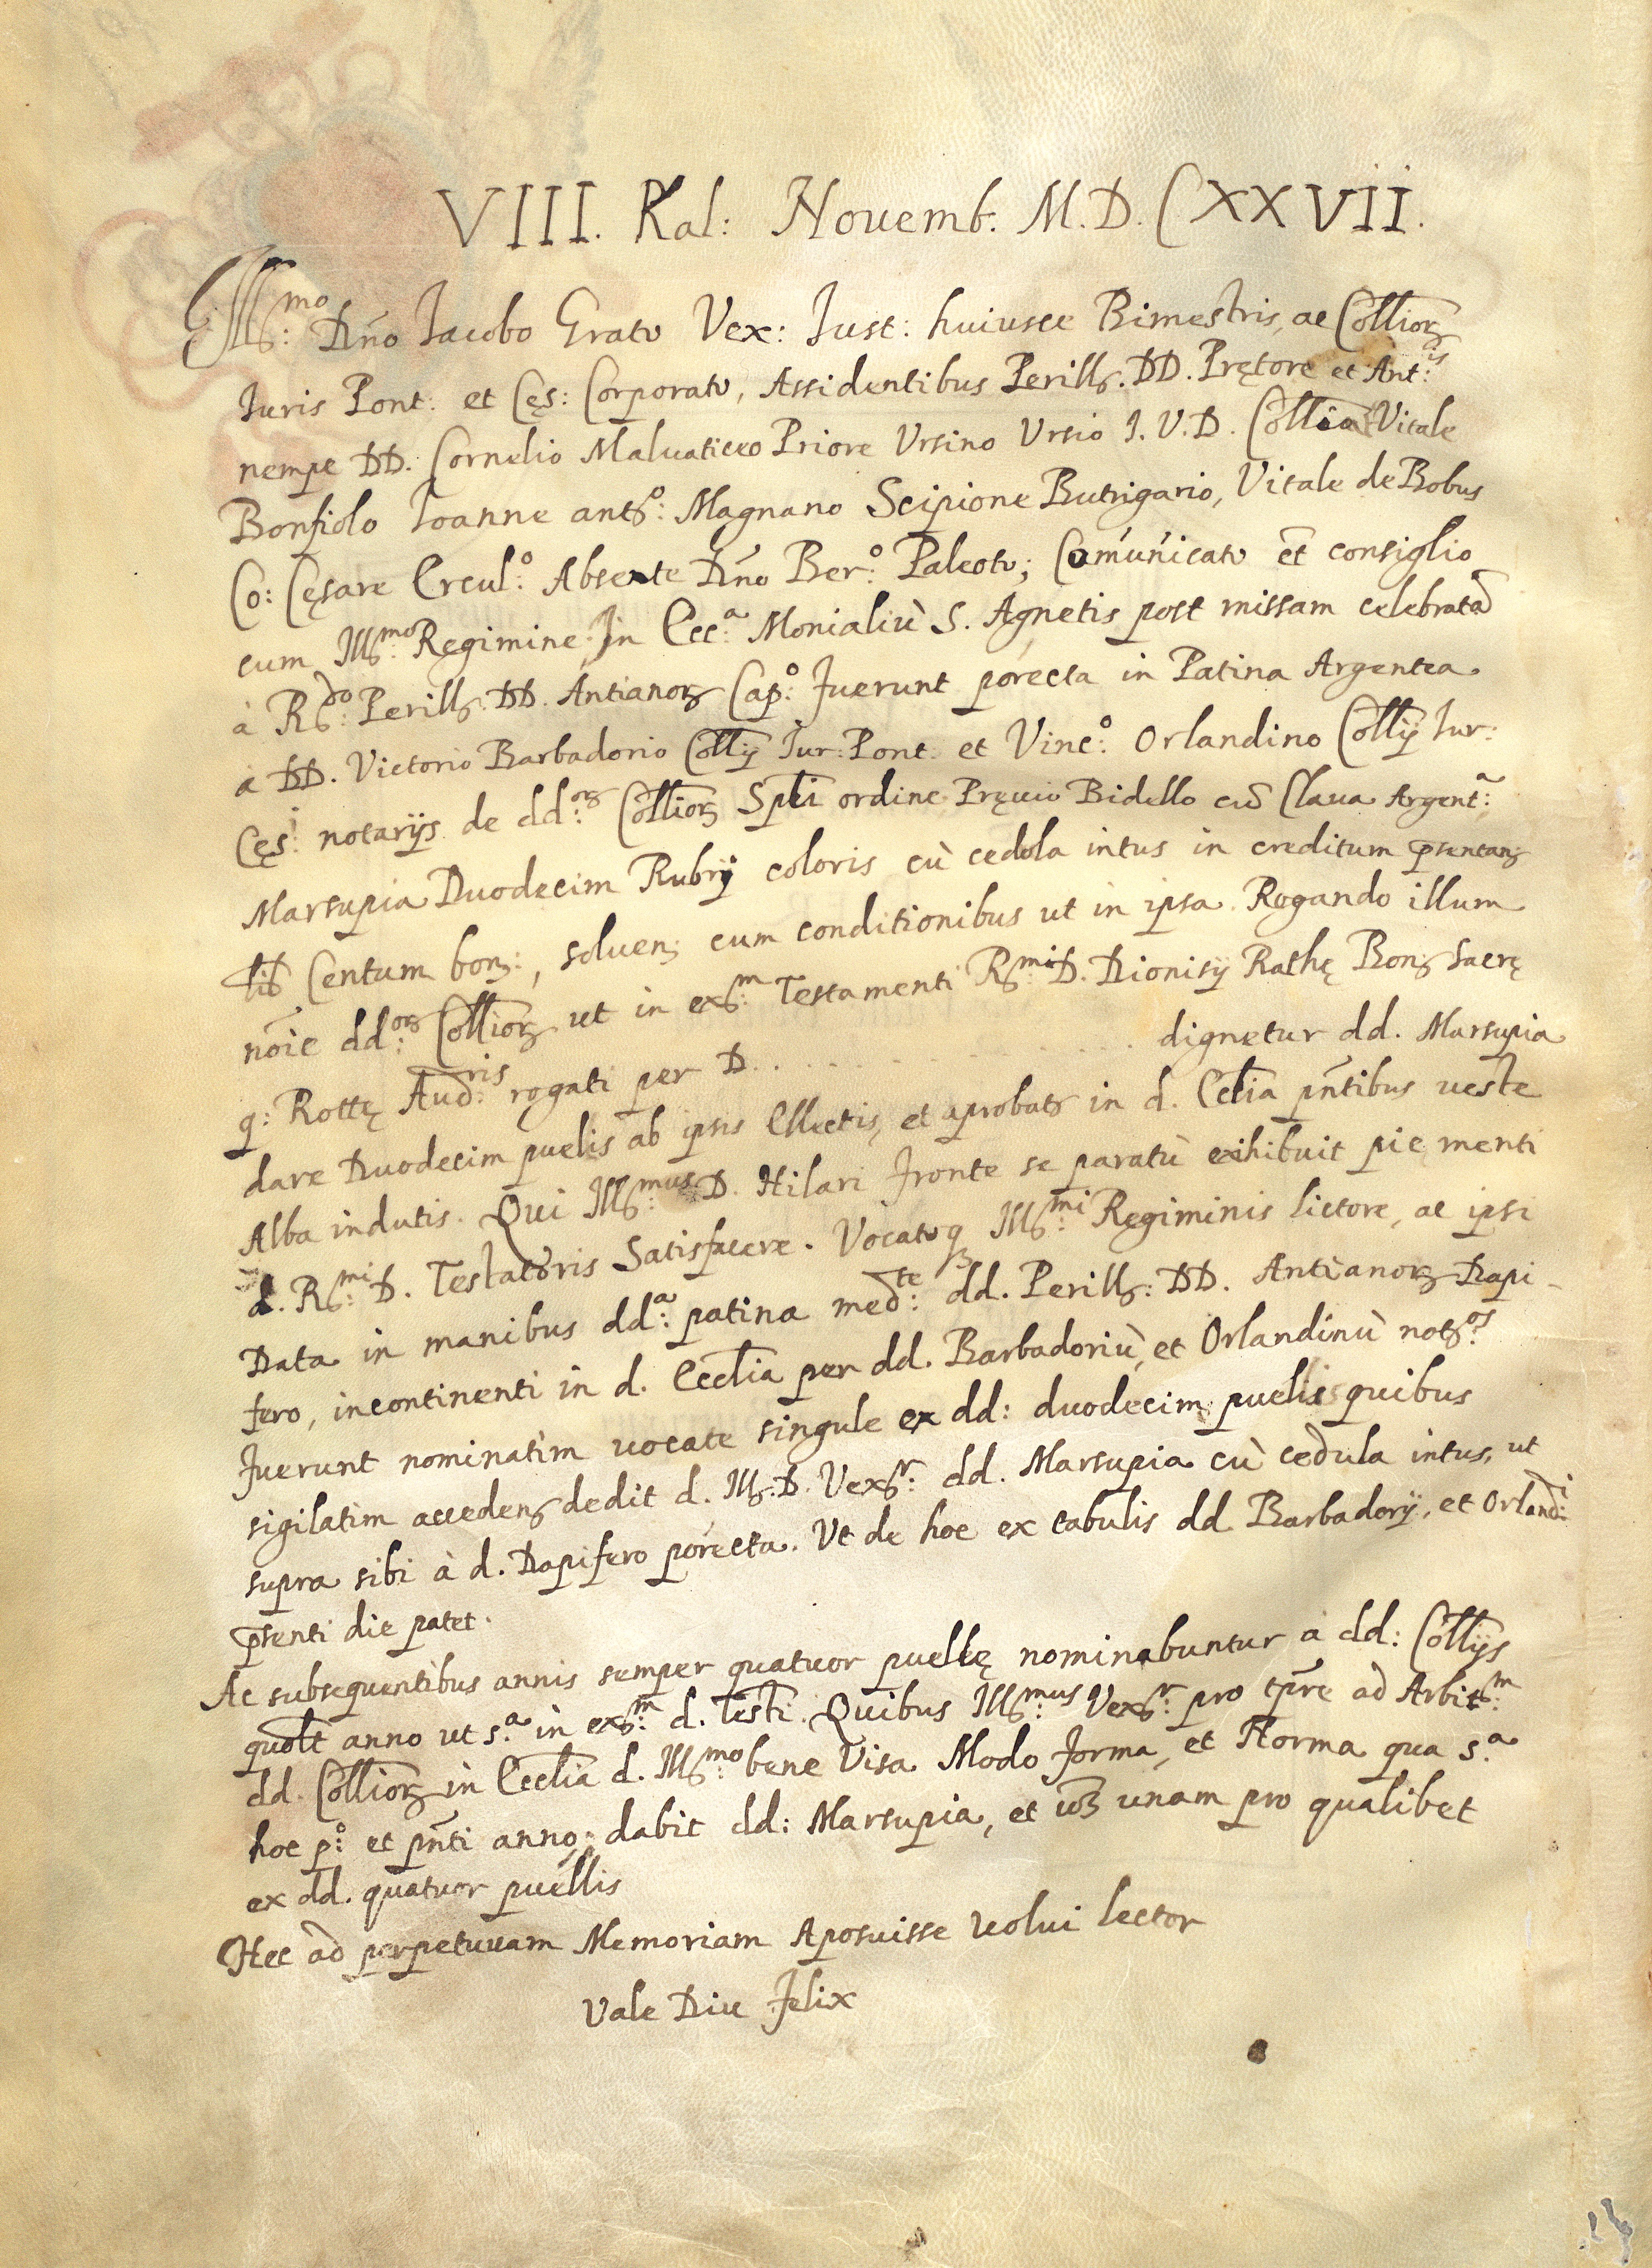 VIII. Kal: Nouemb. M.D.CXXVII.
Ill.mo: Dño Iacobo Grato Vex: Iust: huiusce Bimestris, ac Collior̃
Iuris Pont: et Cęs: Corporato, Assidentibus Perill. DD. Prętore et Ant:is
nempe DD. Cornelio Maluaticeo Priore Vrsino Vrsio I. V. D. Vitale
Bonfiolo Ioanne ant:o Magnano Scipione Butrigario, Vitale de Bobus
Co: Cęsare Ercul:o Absente Dño Ber:o Paleoto; Comunicato et̃ consiglio
cum Ill:mo Regimine In Ecc:a Monialiù S. Agnetis post missam celebratã
à R:do Perill. DD. Antianor̃ Cap:o fuerunt porecta in Patina Argentea
a DD. Victorio Barbadorio Collij Iur: Pont. et Vinc:o Orlandino Collij Iur:
Cęs: notarijs de dd:or̃ Collior̃ Spli ordine Pręuio Bidello cũ Claua Argent:a
Marsupia Duodecim Rubrij coloris cù cedola intus in creditum pr̃sentan
lib Centum bon:, soluen cum conditionibus ut in ipsa Rogando illum
nõie dd:or̃ Collior̃ ut in ex:m Testamenti R:mi D. Dionisij Rathę Bon sacrę
q: Rottę Aud:ris rogati per D. . . . . . . dignetur dd. Marsupia
dare Duodecim puelis ab ipsis Ellectis, et aprobat in d. Cclia pñtibus ueste
Alba indutis. Qui Ill:mus D. Hilari fronte se paratù exihibuit pie menti
d. R:mi D. Testatoris Satisfacere. Vocatoq Ill:mi Regiminis lictore, ac ipsi
Data in manibus dd:a patina med:te dd. Perill: DD. Antianor̃ Dapi-
fero, incontinenti in d. Ecclia per dd. Barbadoriù, et Orlandinù not:os
fuerunt nominatim uocate singule ex dd: duodecim puelis quibus
sigilatim acceden dedit d. Ill. D. Vex:r dd. Marsupia cù cedula intus, ut
supra sibi à d. Dapifero porecta. Vt de hoc ex tabulis dd. Barbadorij, et Orland:i
pr̃senti die patet.
Ac subsequentibus annis semper quatuor puellę nominabuntur a dd: Collijs
quolt anno ut s:a in ex:m d. Testi. Quibus Ill:mus Vex:r pro tp̃re ad Arbit:m
dd. Collior̃ in Ecclia d. Ill:mo bene Visa Modo forma, et Norma qua s.a
hoc p:o et pñti anno; dabit dd: Marsupia, et unam pro qualibet
ex dd. quatuor puellis
Hec ad perpetuuam Memoriam Aposuisse uolui lector
Vale Diu felix